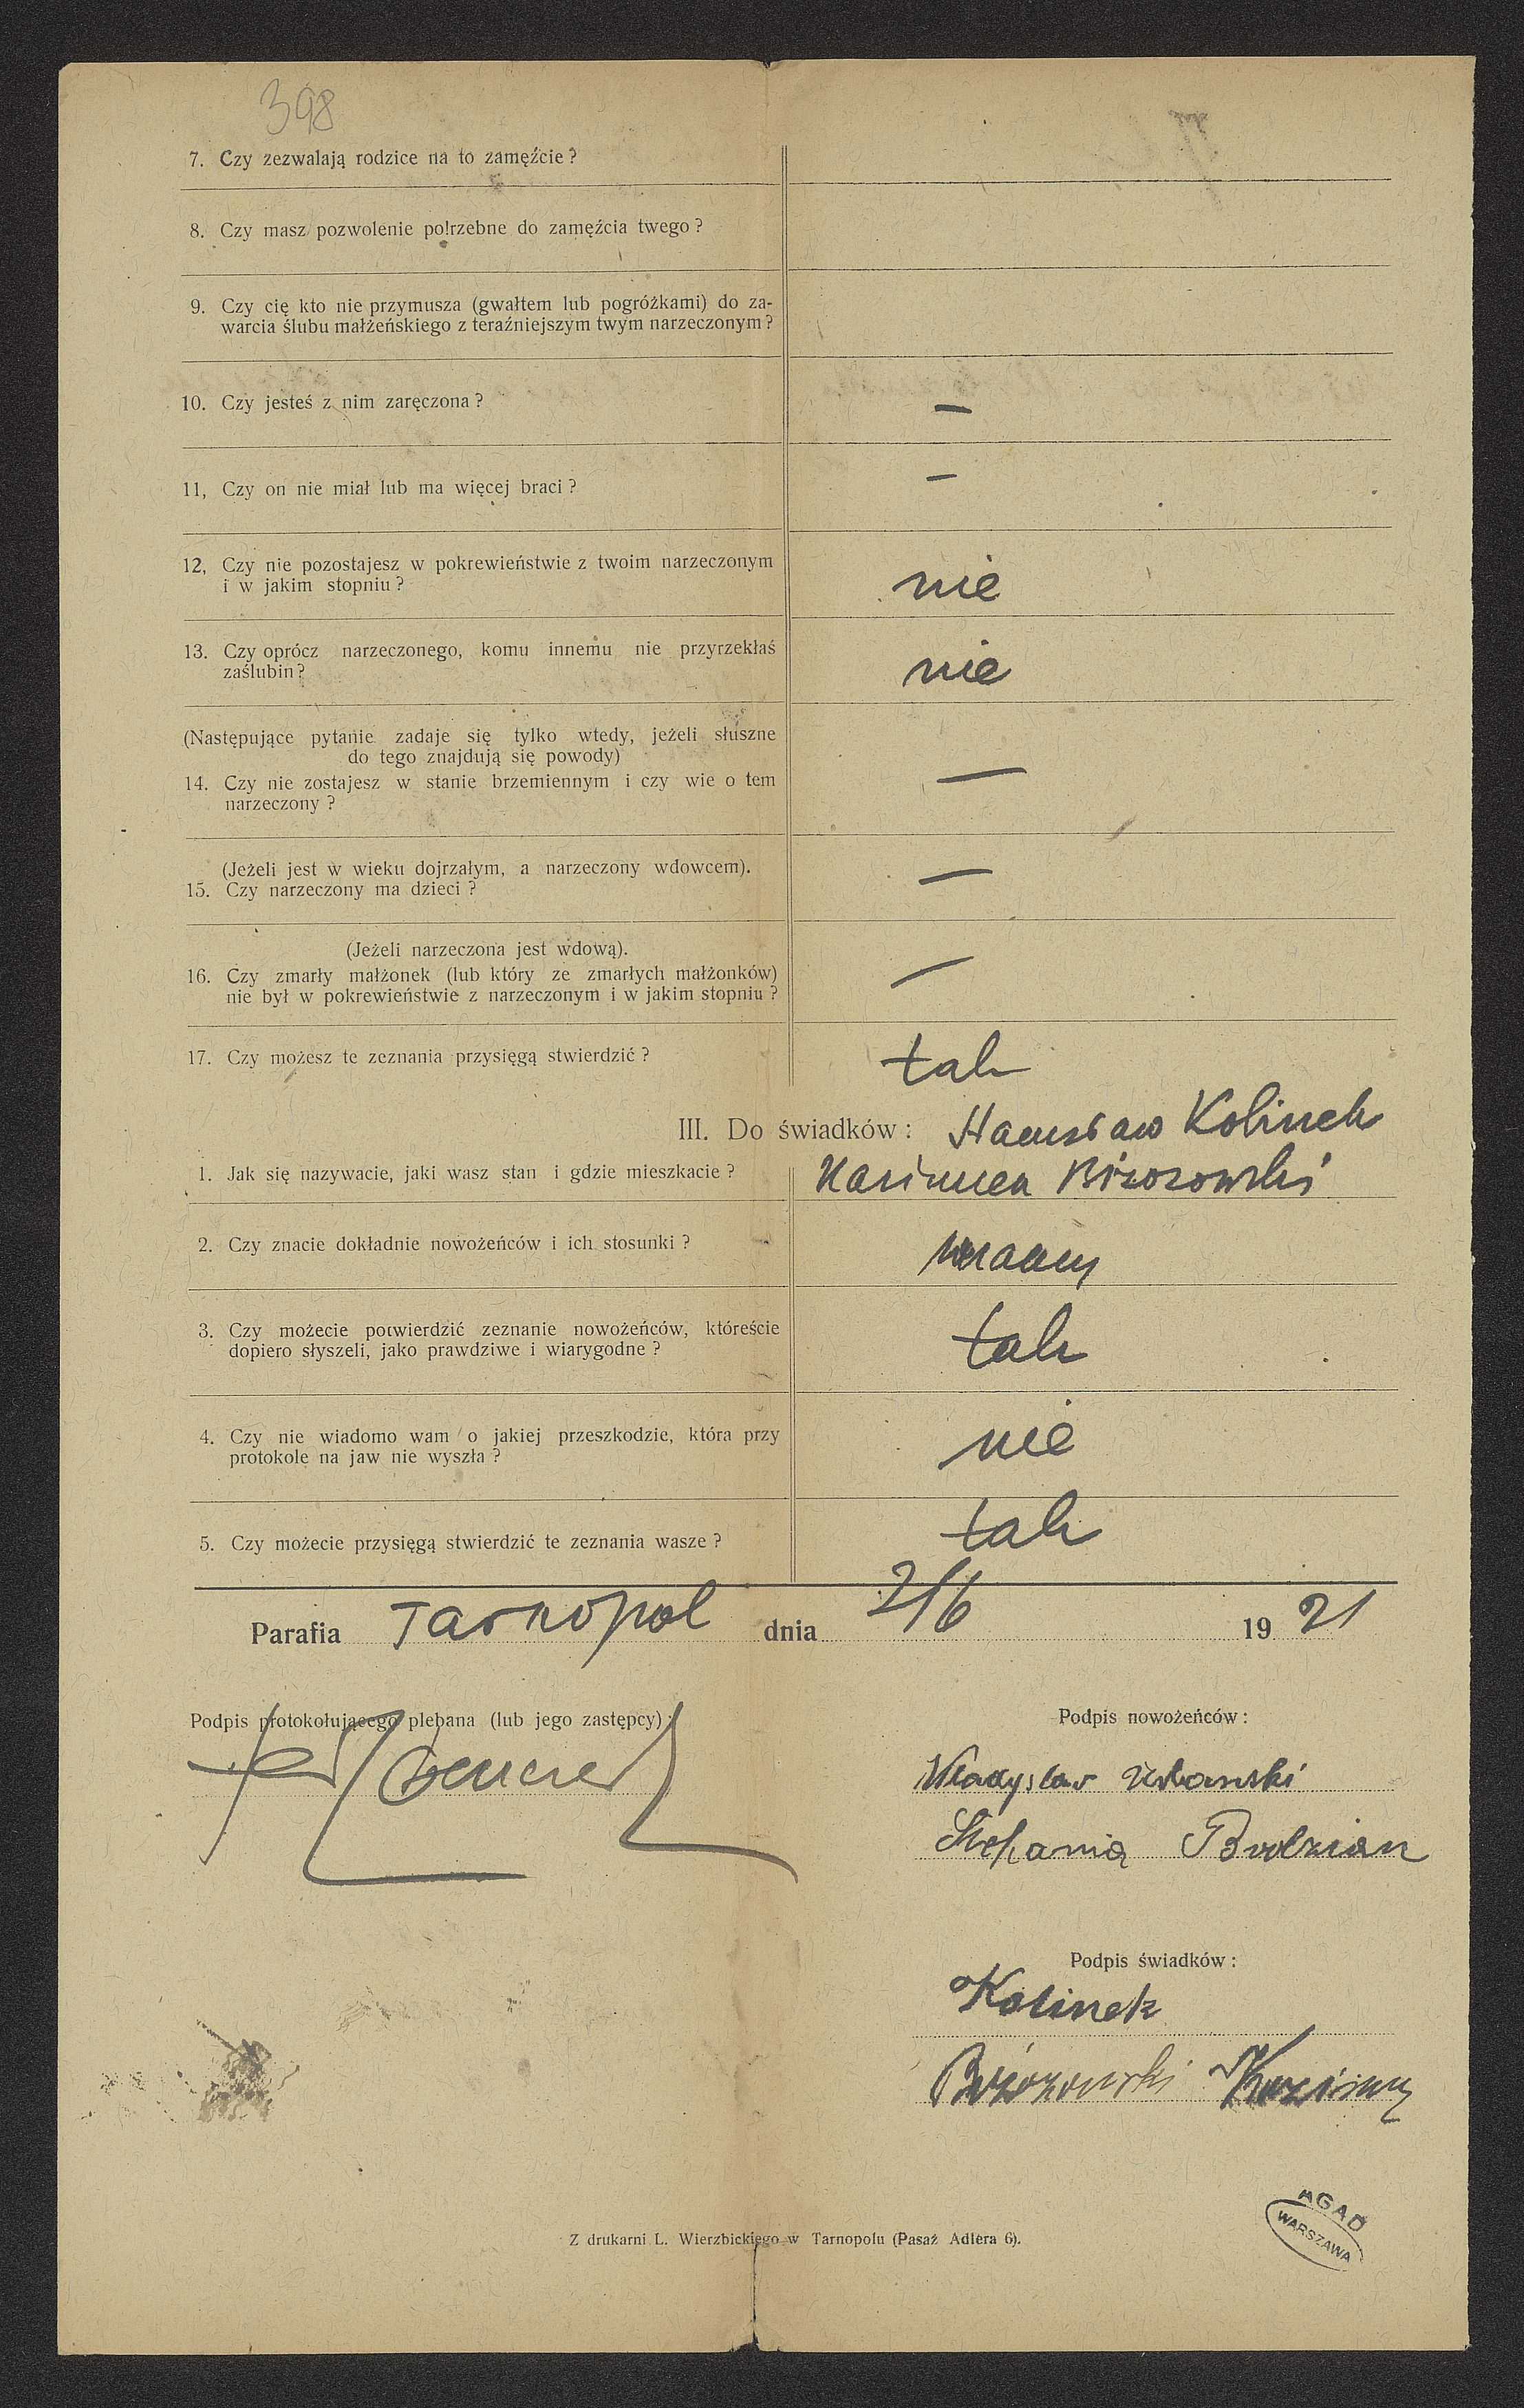 398
7. Czy zezwalają rodzice na to zamęźcie?
8. Czy masz pozwolenie potrzebne do zamęźcia twego?
9. Czy cię kto nie przymusza (gwałtem lub pogróżkami) do za-
warcia ślubu małżeńskiego z teraźniejszym twym narzeczonym?
10. Czy jesteś z nim zaręczona? —
11, Czy on nie miał lub ma więcej braci? —
12, Czy nie pozostajesz w pokrewieństwie z twoim narzeczonym
i w jakim stopniu? nie
13. Czy oprócz narzeczonego, komu innemu nie przyrzekłaś
zaślubin? nie
(Następujące pytanie zadaje się tylko wtedy, jeżeli słuszne
do tego znajdują się powody)
14. Czy nie zostajesz w stanie brzemiennym i czy wie o tem —
narzeczony?
(Jeżeli jest w wieku dojrzałym, a narzeczony wdowcem).
15. Czy narzeczony ma dzieci? —
(Jeżeli narzeczona jest wdową).
16. Czy zmarły małżonek (lub który ze zmarłych małżonków) —
nie był w pokrewieństwie z narzeczonym i w jakim stopniu?
17. Czy możesz te zeznania przysięgą stwierdzić? tak
III. Do świadków: Stanisław Kolinek
1. Jak się nazywacie, jaki wasz stan i gdzie mieszkacie? Kazimierz Brzozowski
2. Czy znacie dokładnie nowożeńców i ich stosunki? znamy
3. Czy możecie potwierdzić zeznanie nowożeńców, któreście
dopiero słyszeli, jako prawdziwe i wiarygodne? tak
4. Czy nie wiadomo wam o jakiej przeszkodzie, która przy
protokole na jaw nie wyszła? nie
5. Czy możecie przysięgą stwierdzić te zeznania wasze? tak
Parafia Tarnopol dnia 2/6 19 21
Podpis protokołującego plebana (lub jego zastępcy):
Podpis nowożeńców:
Władysław Urbański
Stefania Brodzian
Podpis świadków:
Kolinek
Brzozowski Kazimierz
Z drukarni L. Wierzbickiego w Tarnopolu (Pasaż Adlera 6).
AGAD
WARSZAWA